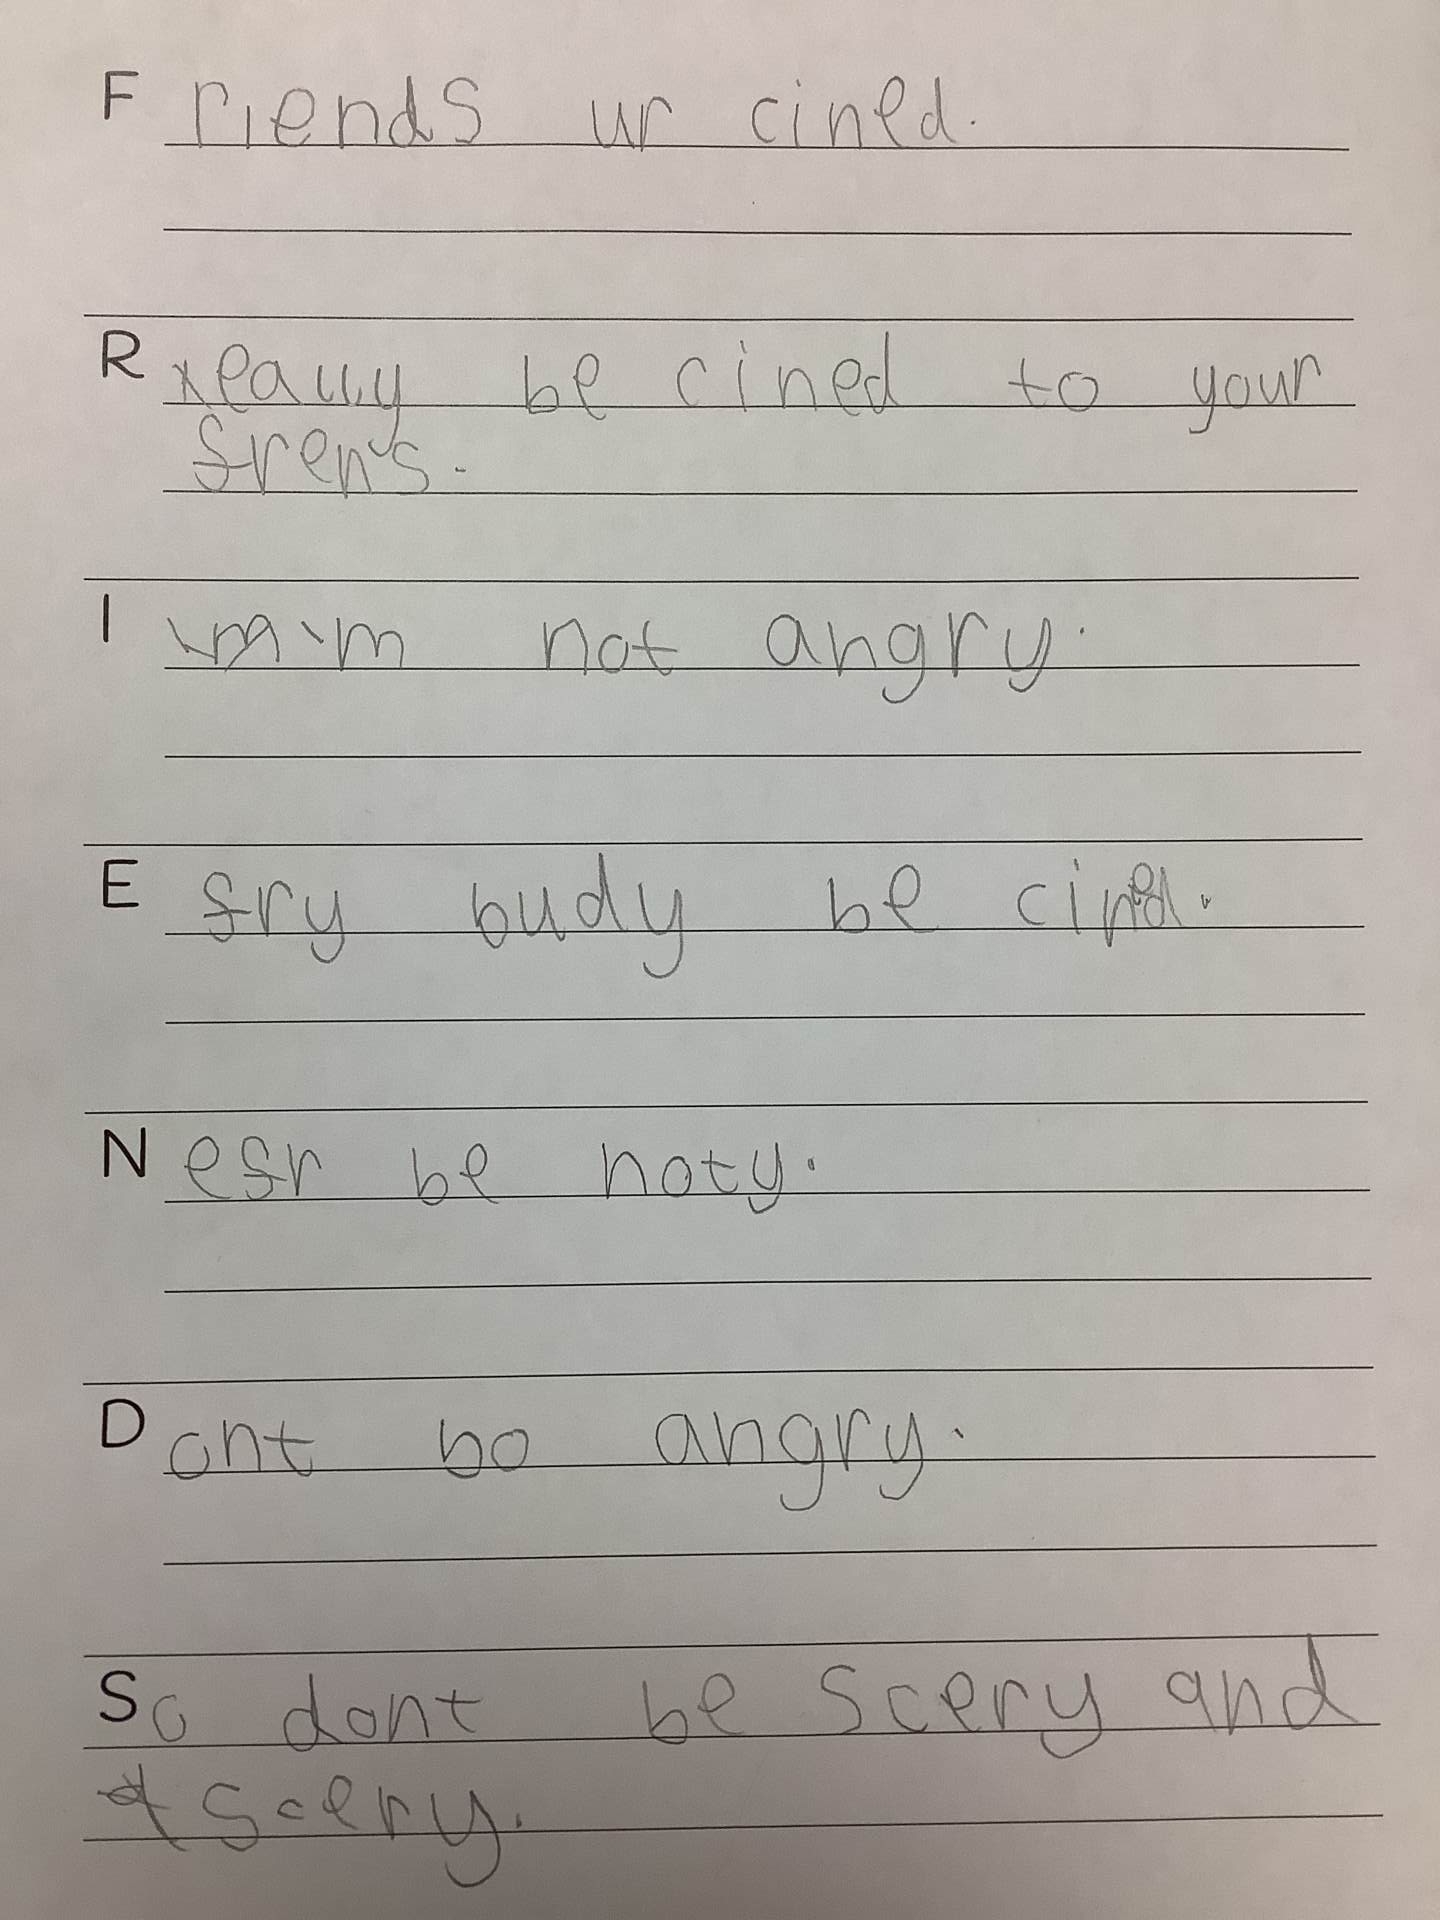 Friends ur cined.
Reallly be cined to your
fren's.
I'm not angry.
Efry budy be cined.
Nefr be noty.
Dont bo angry.
So dont be scery and
scery.